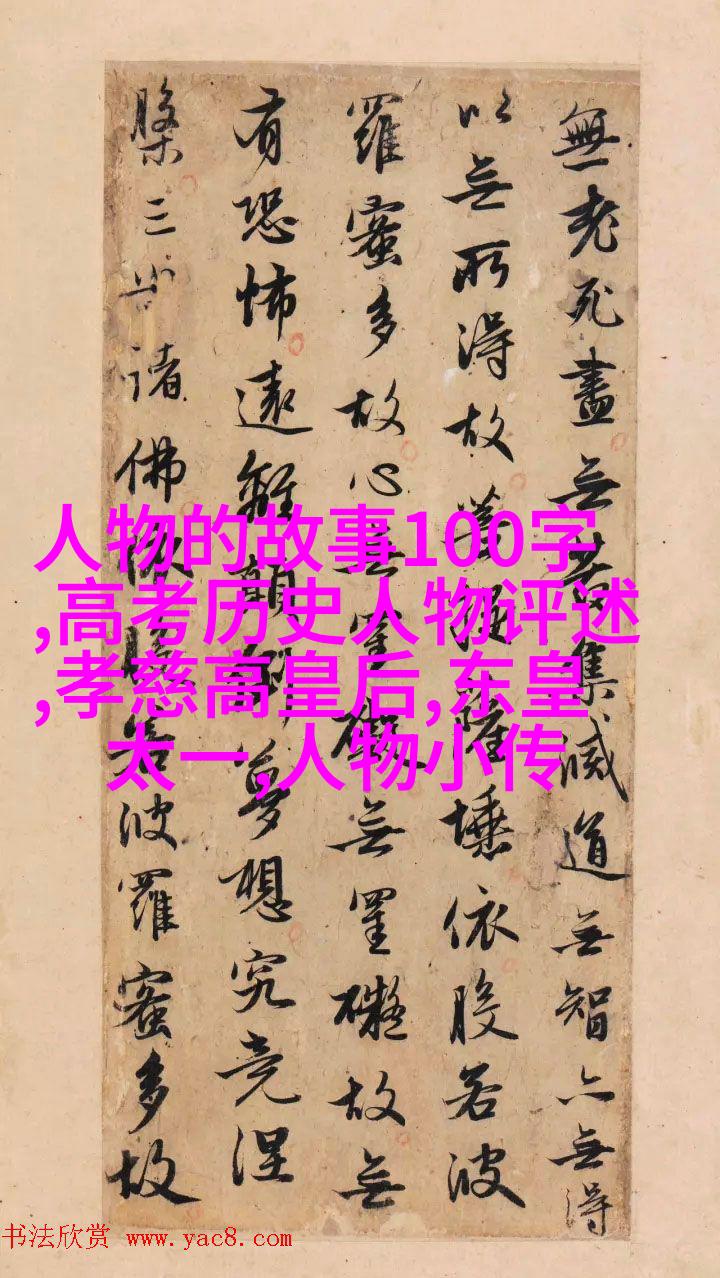 無老死盡无苦集滅道无智亦无得
以无所得故菩提薩埵依般若波
羅蜜多故心无罣礙无罣礙故无
有恐怖遠離顛倒夢想究竟涅
槃三世諸佛依般若波羅蜜多故
人物的故事100字
,高考历史人物评述
,孝慈高皇后,东皇
太一,人物小传
书法欣赏 www.yac8.com